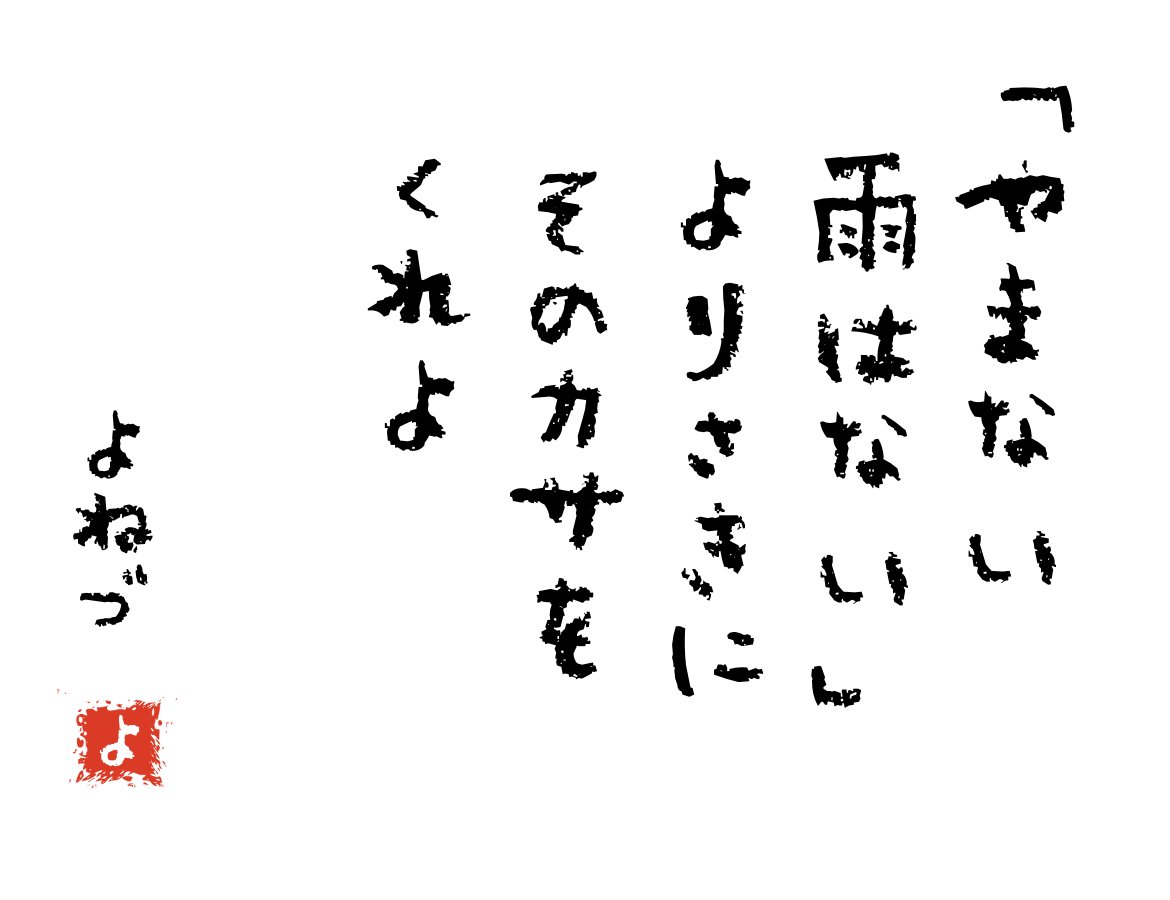 「やまない
雨はない」
よりさきに
そのカサを
くれよ
よねづ
よ